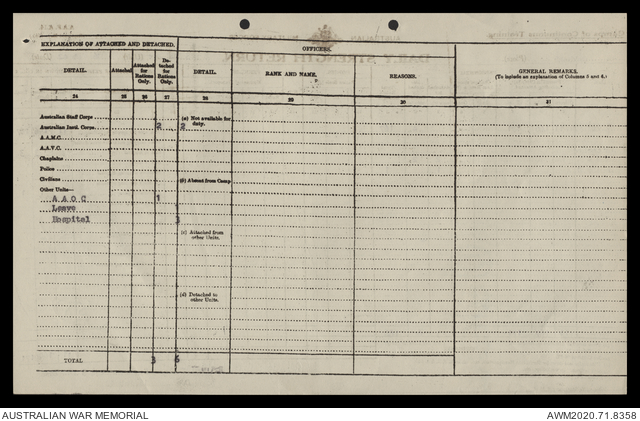 EXPLANATION OF ATTACHED AND DETACHED.
OFFICERS.
GENERAL REMARKS.
(To include an explanation of Columns 5 and 6.)
DETAIL. Attached Attached for Rations Only. De-tached for Rations Only. DETAIL. RANK AND NAME. REASONS.
24 25 26 27 28 29 30 31
Australian Staff Corps
(a) Not available for duty.
Australian Instl. Corps 2 2
A.A.M.C.
A.A.V.C.
Chaplains
Police
Civilians (b) Absent from Camp
Other Units—
A A O C 1
Leave
Hospital
(c) Attached from other Units.
(d) Detached to other Units.
TOTAL 3
DAILY STRENGTH RETURN
AUSTRALIAN WAR MEMORIAL
AWM2020.71.8358